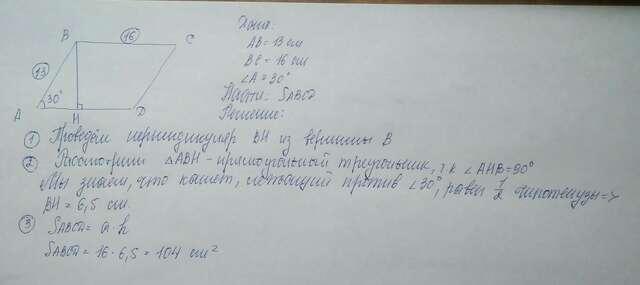 B
16
C
13
30°
A
H
D
Дано:
AB = 13 см
BC = 16 см
∠A = 30°
Найти: SABCD
Решение:
① Проведём перпендикуляр BH из вершины B
② Рассмотрим △ABH - прямоугольный треугольник, т.к ∠AHB = 90°
Мы знаем, что катет, лежащий против ∠30°, равен 1/2 гипотенузы =>
BH = 6,5 см.
③ SABCD = a · h
SABCD = 16 · 6,5 = 104 см²